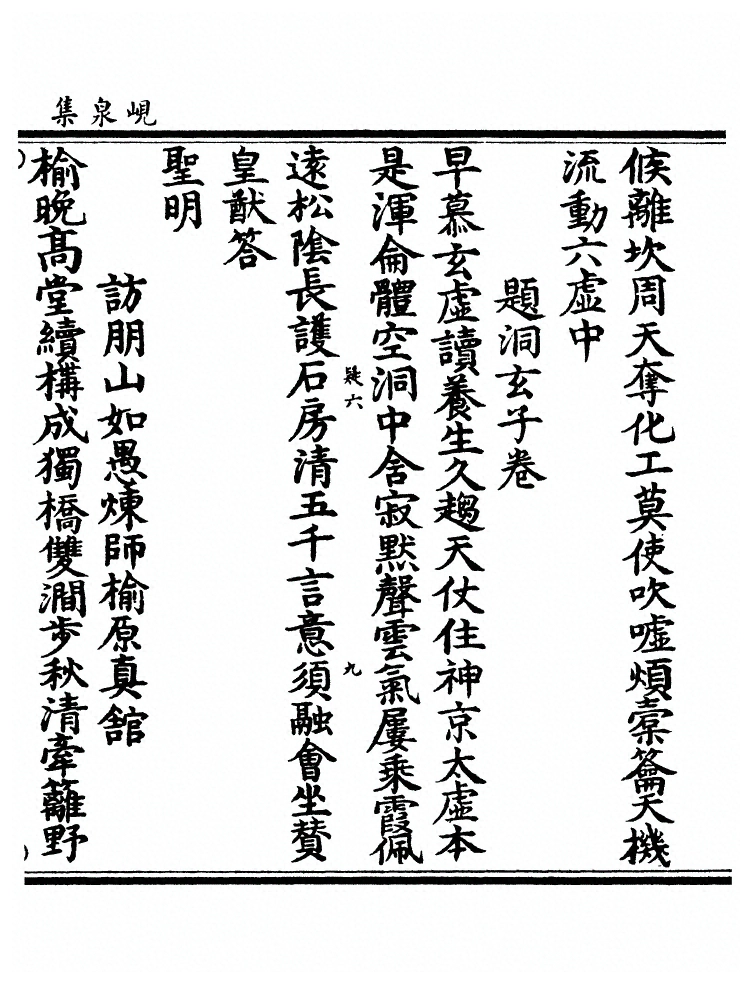 峴泉集
候離坎周天奪化工莫使吹噓煩橐籥天機
流動六虛中
題洞玄子卷
早慕玄虛讀養生久趨天仗住神京太虛本
是渾侖體空洞中含寂默聲雲氣屢乘霞佩
疑六
九
遠松陰長護石房清五千言意須融會坐贊
皇猷答
聖明
訪朋山如愚煉師榆原真舘
榆晚高堂續構成獨橋雙澗步秋清牽籬野